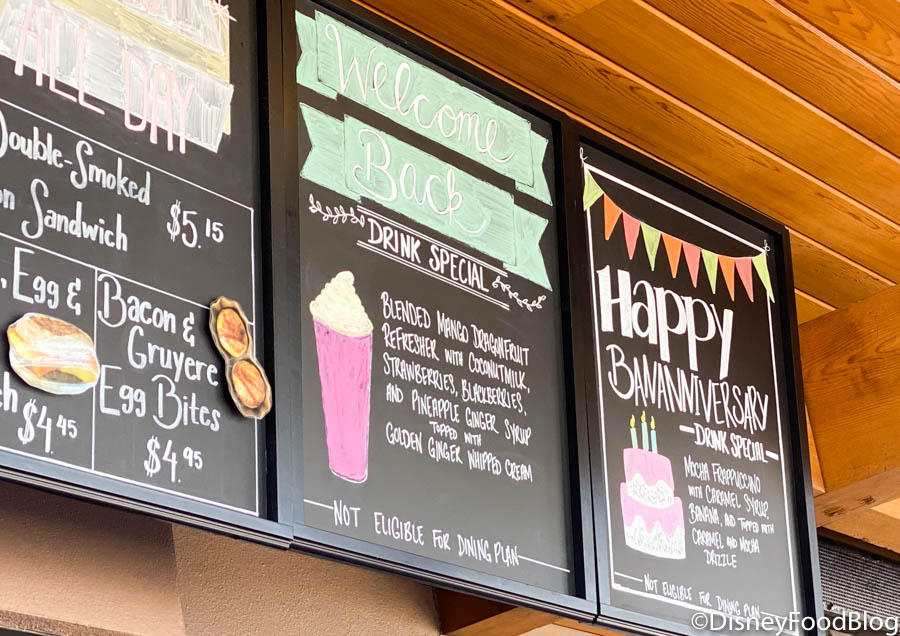 ALL DAY
Double-Smoked
Sandwich
$5.15
Egg &
$4.45
Bacon &
Gruyere
Egg Bites
$4.95
Welcome
Back
DRINK SPECIAL
BLENDED MANGO DRAGONFRUIT
REFRESHER WITH COCONUTMILK,
STRAWBERRIES, BLACKBERRIES,
AND PINEAPPLE GINGER SYRUP
TOPPED WITH
GOLDEN GINGER WHIPPED CREAM
NOT ELIGIBLE FOR DINING PLAN
Happy
BANANNIVERSARY
DRINK SPECIAL
MOCHA FRAPPUCCINO
WITH CARAMEL SYRUP,
BANANA, AND TOPPED WITH
CARAMEL AND MOCHA
DRIZZLE
NOT ELIGIBLE FOR DINING PLAN
©DisneyFoodBlog